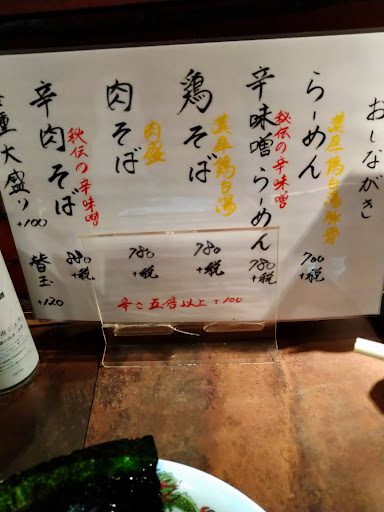 おしながき
濃厚鶏白湯豚骨
らーめん
700
+税
秘伝の辛味噌
辛味噌らーめん
780
+税
濃厚鶏白湯
鶏そば
780
+税
肉盛
肉そば
780
+税
秘伝の辛味噌
辛肉そば
880
+税
大盛り
+100
替玉
+120
辛さ五倍以上+100